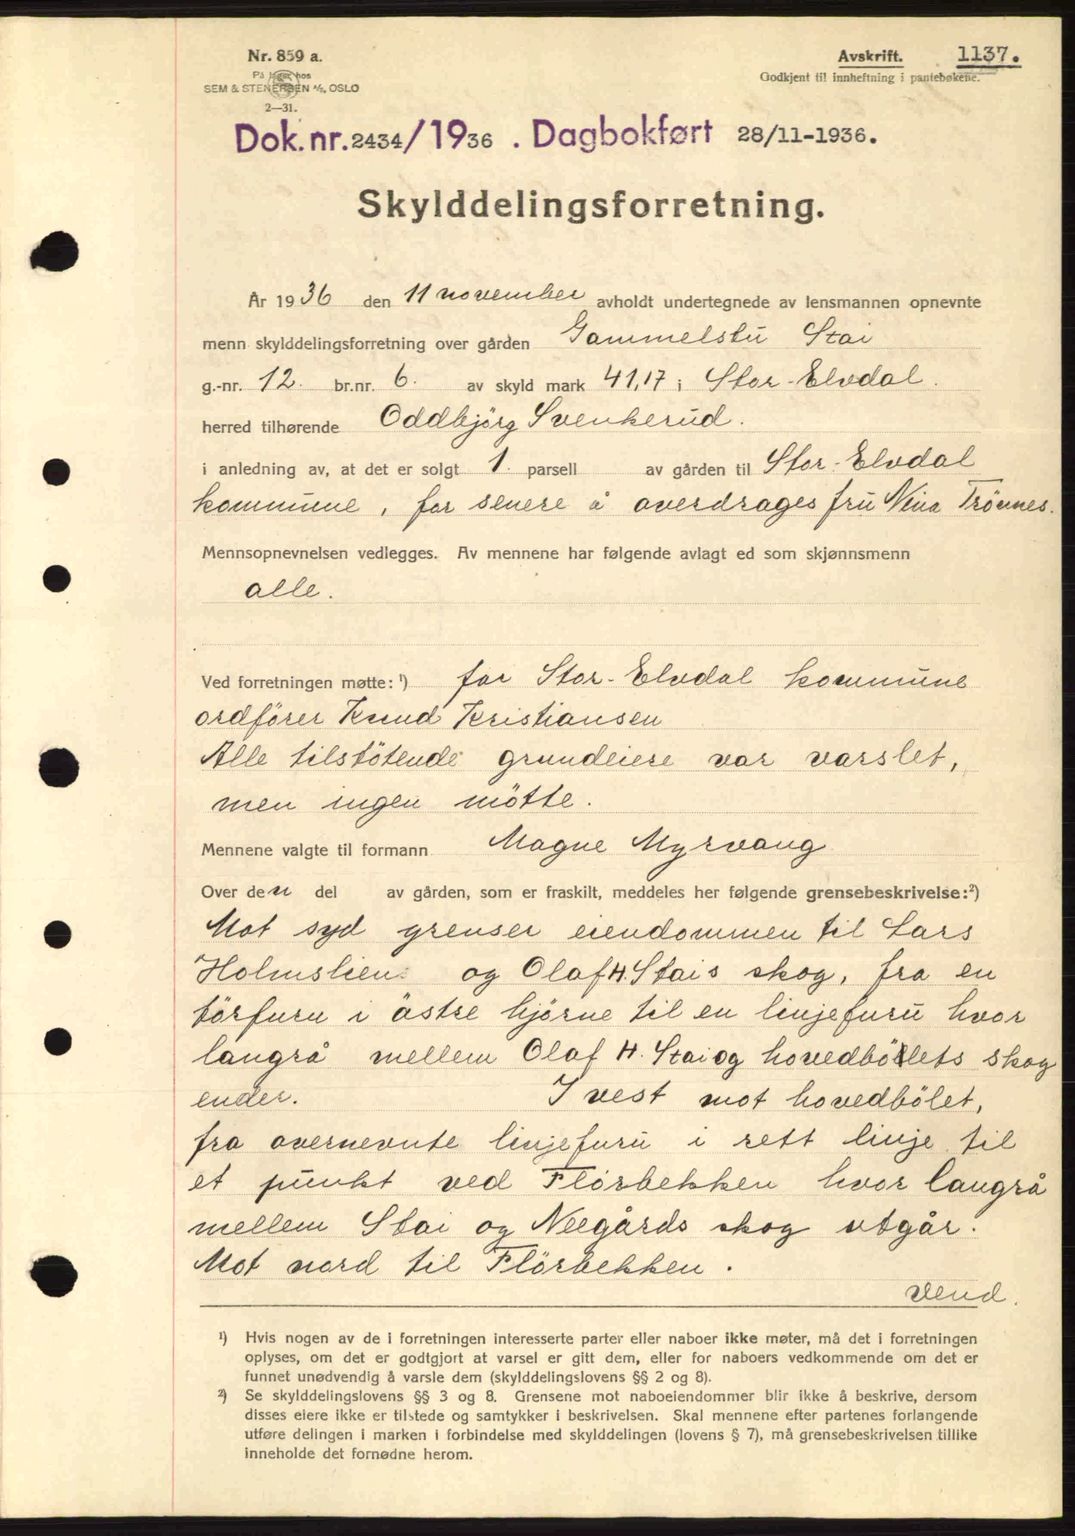 Nr. 859 a.
På lager hos
SEM & STENERSEN A/S, OSLO
2—31.
Avskrift. 1137.
Godkjent til innheftning i pantebøkene.
Dok.nr. 2434/1936. Dagbokført 28/11-1936.
Skylddelingsforretning.
År 1936 den 11 november avholdt undertegnede av lensmannen opnevnte
menn skylddelingsforretning over gården Gammelstu Stai
g.-nr. 12. br.nr. 6. av skyld mark 41,17 i Stor-Elvdal.
herred tilhørende Oddbjörg Svenkerud.
i anledning av, at det er solgt 1. parsell av gården til Stor-Elvdal
kommune, for senere å overdrages fru Nina Trönnes.
Mennsopnevnelsen vedlegges. Av mennene har følgende avlagt ed som skjønnsmenn
alle.
Ved forretningen møtte:¹) for Stor-Elvdal kommune
ordförer Knud Kristiansen
Alle tilstötende grundeiere var varslet,
men ingen mötte.
Mennene valgte til formann Magne Myrvang
Over den del av gården, som er fraskilt, meddeles her følgende grensebeskrivelse:²)
Mot syd grenser eiendommen til Lars
Holmslien og Olaf H. Stais skog, fra en
törfuru i östre hjörne til en linjefuru hvor
langrå mellem Olaf H. Stai og hovedbölets skog
ender. I vest mot hovedbölet,
fra overnevnte linjefuru i rett linje til
et punkt ved Flörbekken hvor langrå
mellem Stai og Neegårds skog utgår.
Mot nord til Flörbekken.
Vend.
¹) Hvis nogen av de i forretningen interesserte parter eller naboer ikke møter, må det i forretningen
oplyses, om det er godtgjort at varsel er gitt dem, eller for naboers vedkommende om det er
funnet unødvendig å varsle dem (skylddelingslovens §§ 2 og 8).
²) Se skylddelingslovens §§ 3 og 8. Grensene mot naboeiendommer blir ikke å beskrive, dersom
disses eiere ikke er tilstede og samtykker i beskrivelsen. Skal mennene efter partenes forlangende
utføre delingen i marken i forbindelse med skylddelingen (lovens § 7), må grensebeskrivelsen tillike
inneholde det fornødne herom.